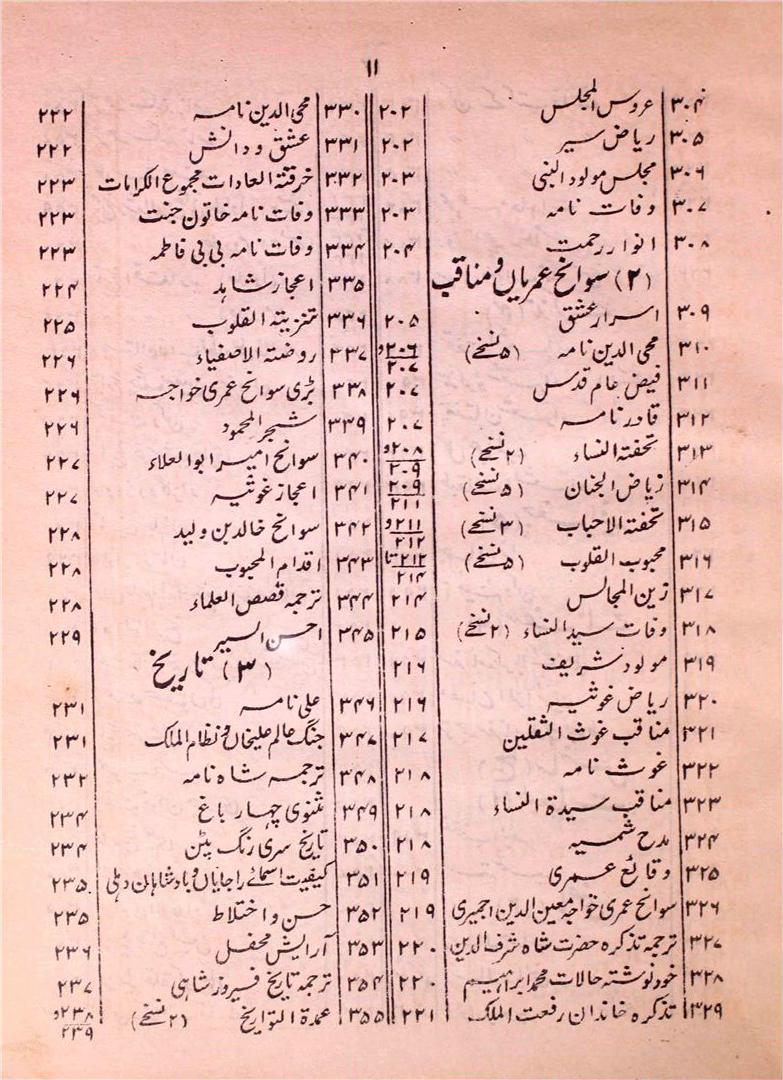 ۱۱
۳۰۴ عروس المجلس ۲۰۲
۳۰۵ ریاض سیر ۲۰۲
۳۰۶ مجلس مولود النبی ۲۰۳
۳۰۷ وفات نامہ ۲۰۳
۳۰۸ انوار رحمت ۲۰۴
(۲) سوانح عمریاں و مناقب
۳۰۹ اسرار عشق ۲۰۵
۳۱۰ محی الدین نامہ (۵ نسخے) ۲۰۶ و ۲۰۷
۳۱۱ فیض عام قدس ۲۰۷
۳۱۲ قادر نامہ ۲۰۷
۳۱۳ تحفتہ النساء (۲ نسخے) ۲۰۸ و ۲۰۹
۳۱۴ ریاض الجنان (۵ نسخے) ۲۰۹ ۲۱۱
۳۱۵ تحفتہ الاحباب (۳ نسخے) ۲۱۱ و ۲۱۲
۳۱۶ محبوب القلوب (۵ نسخے) ۲۱۲ تا ۲۱۴
۳۱۷ زین المجالس ۲۱۴
۳۱۸ وفات سید النساء (۲ نسخے) ۲۱۵
۳۱۹ مولود شریف ۲۱۶
۳۲۰ ریاض غوثیہ ۲۱۶
۳۲۱ مناقب غوث الثقلین ۲۱۷
۳۲۲ غوث نامہ ۲۱۸
۳۲۳ مناقب سیدة النساء ۲۱۸
۳۲۴ مدح شمسیہ ۲۱۸
۳۲۵ وقائع عمری ۲۱۹
۳۲۶ سوانح عمری خواجہ معین الدین اجمیری ۲۱۹
۳۲۷ ترجمہ تذکرہ حضرت شاہ شرف الدین ۲۲۰
۳۲۸ خود نوشتہ حالات محمد ابراہیم ۲۲۰
۳۲۹ تذکرہ خاندان رفعت الملک ۲۲۱
۳۳۰ محی الدین نامہ ۲۲۲
۳۳۱ عشق و دانش ۲۲۲
۳۳۲ خرقتہ العادات مجموع الکرامات ۲۲۳
۳۳۳ وفات نامہ خاتون جنت ۲۲۳
۳۳۴ وفات نامہ بی بی فاطمہ ۲۲۳
۳۳۵ اعجاز شاہد ۲۲۴
۳۳۶ تنزیتہ القلوب ۲۲۵
۳۳۷ روضتہ الاصفیاء ۲۲۶
۳۳۸ بڑی سوانح عمری خواجہ ۲۲۶
۳۳۹ شجر المحمود ۲۲۶
۳۴۰ سوانح امیر ابو العلاء ۲۲۷
۳۴۱ اعجاز غوثیہ ۲۲۷
۳۴۲ سوانح خالد بن ولید ۲۲۸
۳۴۳ اقدام المحبوب ۲۲۸
۳۴۴ ترجمہ قصص العلماء ۲۲۸
۳۴۵ احسن السیر ۲۲۹
(۳) تاریخ
۳۴۶ علی نامہ ۲۳۱
۳۴۷ جنگ عالم علیخاں و نظام الملک ۲۳۱
۳۴۸ ترجمہ شاہ نامہ ۲۳۲
۳۴۹ مثنوی چہار باغ ۲۳۴
۳۵۰ تاریخ سری رنگ پٹن ۲۳۴
۳۵۱ کیفیت اسمائے راجایاں و بادشاہان دہلی ۲۳۵
۳۵۲ حسن و اختلاط ۲۳۵
۳۵۳ آرایش محفل ۲۳۶
۳۵۴ ترجمہ تاریخ فیروز شاہی ۲۳۷
۳۵۵ عمدة التواریخ (۲ نسخے) ۲۳۸ و ۲۳۹